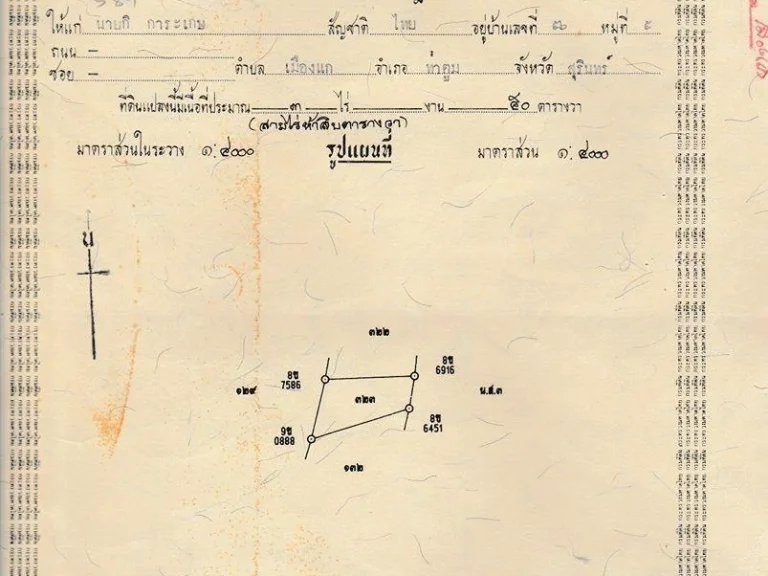 ให้แก่ นายกี การะเกษ สัญชาติ ไทย อยู่บ้านเลขที่ ๘๖ หมู่ที่ ๕
ถนน —
ซอย — ตำบล เมืองแก อำเภอ ท่าตูม จังหวัด สุรินทร์
ที่ดินแปลงนี้มีเนื้อที่ประมาณ ๓ ไร่ — งาน ๕๐ ตารางวา
(สามไร่ห้าสิบตารางวา)
มาตราส่วนในระวาง ๑:๔๐๐๐ รูปแผนที่ มาตราส่วน ๑:๔๐๐๐
น
๓๒๒
8ข 7586
8ข 6916
๑๒๙
๓๒๓
น.ส.๓
9ข 0888
8ข 6451
๑๓๒